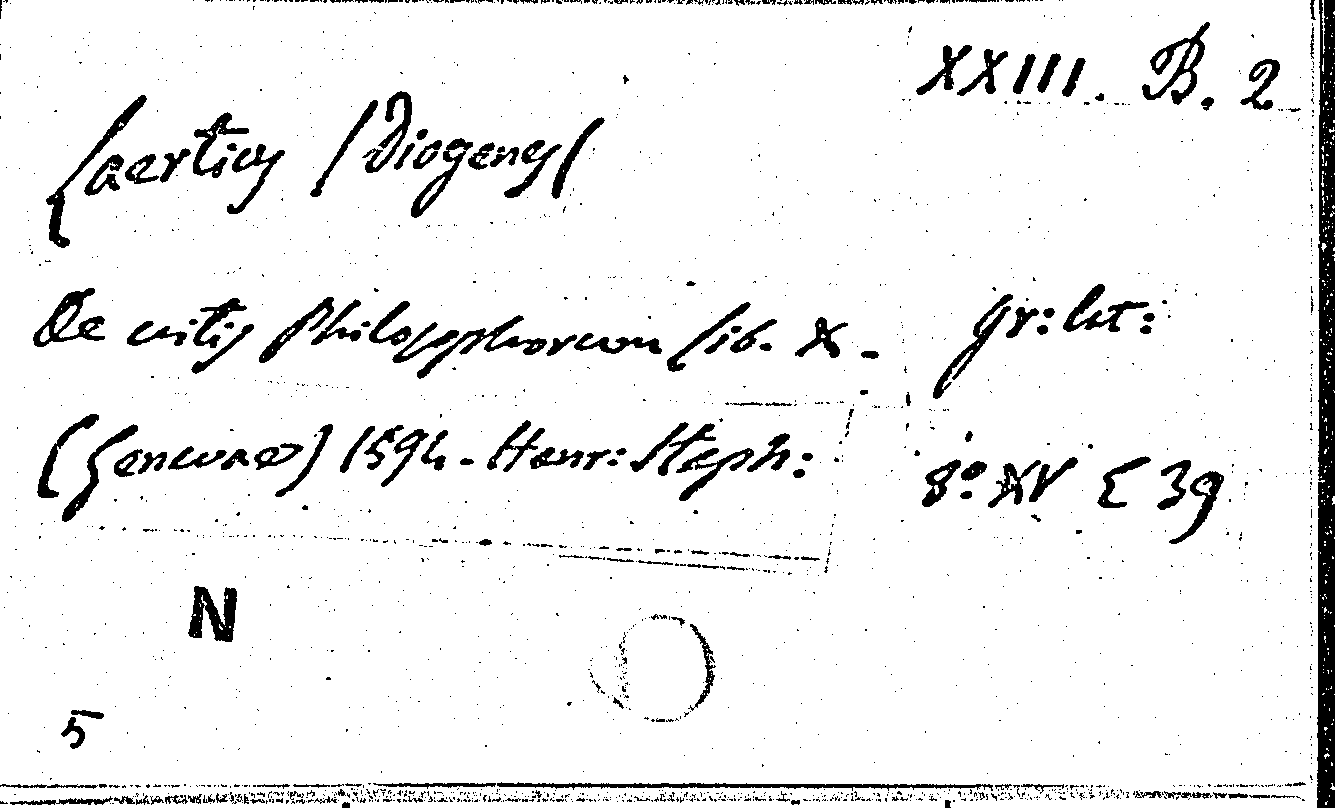 XXIII. B. 2
Laertius /Diogenes/
De vitis Philosophorum Lib. X. gr: lat:
(Genevae) 1594. Henr: Steph: 8º XV E 39
N
5